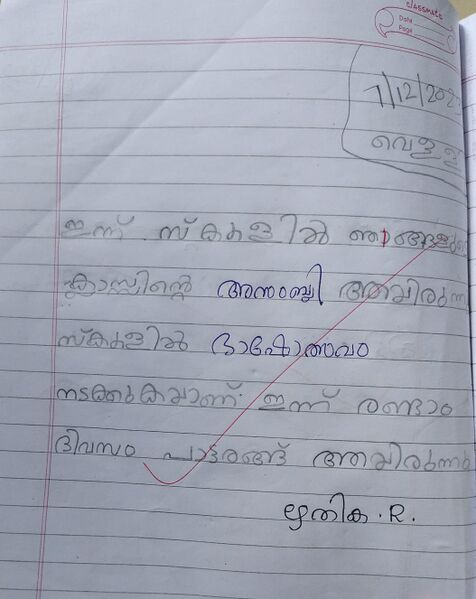 classmate
Date
Page
1/12/202
വെള്ള
ഇന്ന് സ്കൂളിൽ ഞങ്ങളുടെ
ക്ലാസ്സിന്റെ അസംബ്ലി ആയിരുന്നു
സ്കൂളിൽ ഭാഷോത്സവം
നടക്കുകയാണ് ഇന്ന് രണ്ടാം
ദിവസം പാട്ടരങ്ങ് ആയിരുന്നു
ഋതിക .R.